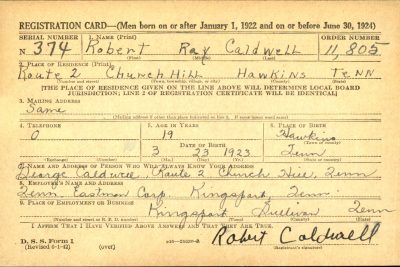 REGISTRATION CARD—(Men born on or after January 1, 1922 and on or before June 30, 1924)
SERIAL NUMBER 1. Name (Print) ORDER NUMBER
N 374 Robert Ray Caldwell 11,805
(First) (Middle) (Last)
2. Place of Residence (Print)
Route 2 Church Hill Hawkins Tenn
(Number and street) (Town, township, village, or city) (County) (State)
[THE PLACE OF RESIDENCE GIVEN ON THE LINE ABOVE WILL DETERMINE LOCAL BOARD
JURISDICTION; LINE 2 OF REGISTRATION CERTIFICATE WILL BE IDENTICAL]
3. Mailing Address
Same
[Mailing address if other than place indicated on line 2. If same insert word same]
4. Telephone 5. Age in Years 6. Place of Birth
0 19 Hawkins
Date of Birth (Town or county)
3 23 1923 Tenn
(Exchange) (Number) (Mo.) (Day) (Yr.) (State or country)
7. Name and Address of Person Who Will Always Know Your Address
George Caldwell, Route 2, Church Hill, Tenn
8. Employer's Name and Address
Tenn. Eastman Corp. Kingsport, Tenn.
9. Place of Employment or Business
Kingsport Sullivan Tenn
(Number and street or R. F. D. number) (Town) (County) (State)
I Affirm That I Have Verified Above Answers and That They Are True.
D. S. S. Form 1
(Revised 6-1-42) (over)
Robert Caldwell
(Registrant's signature)